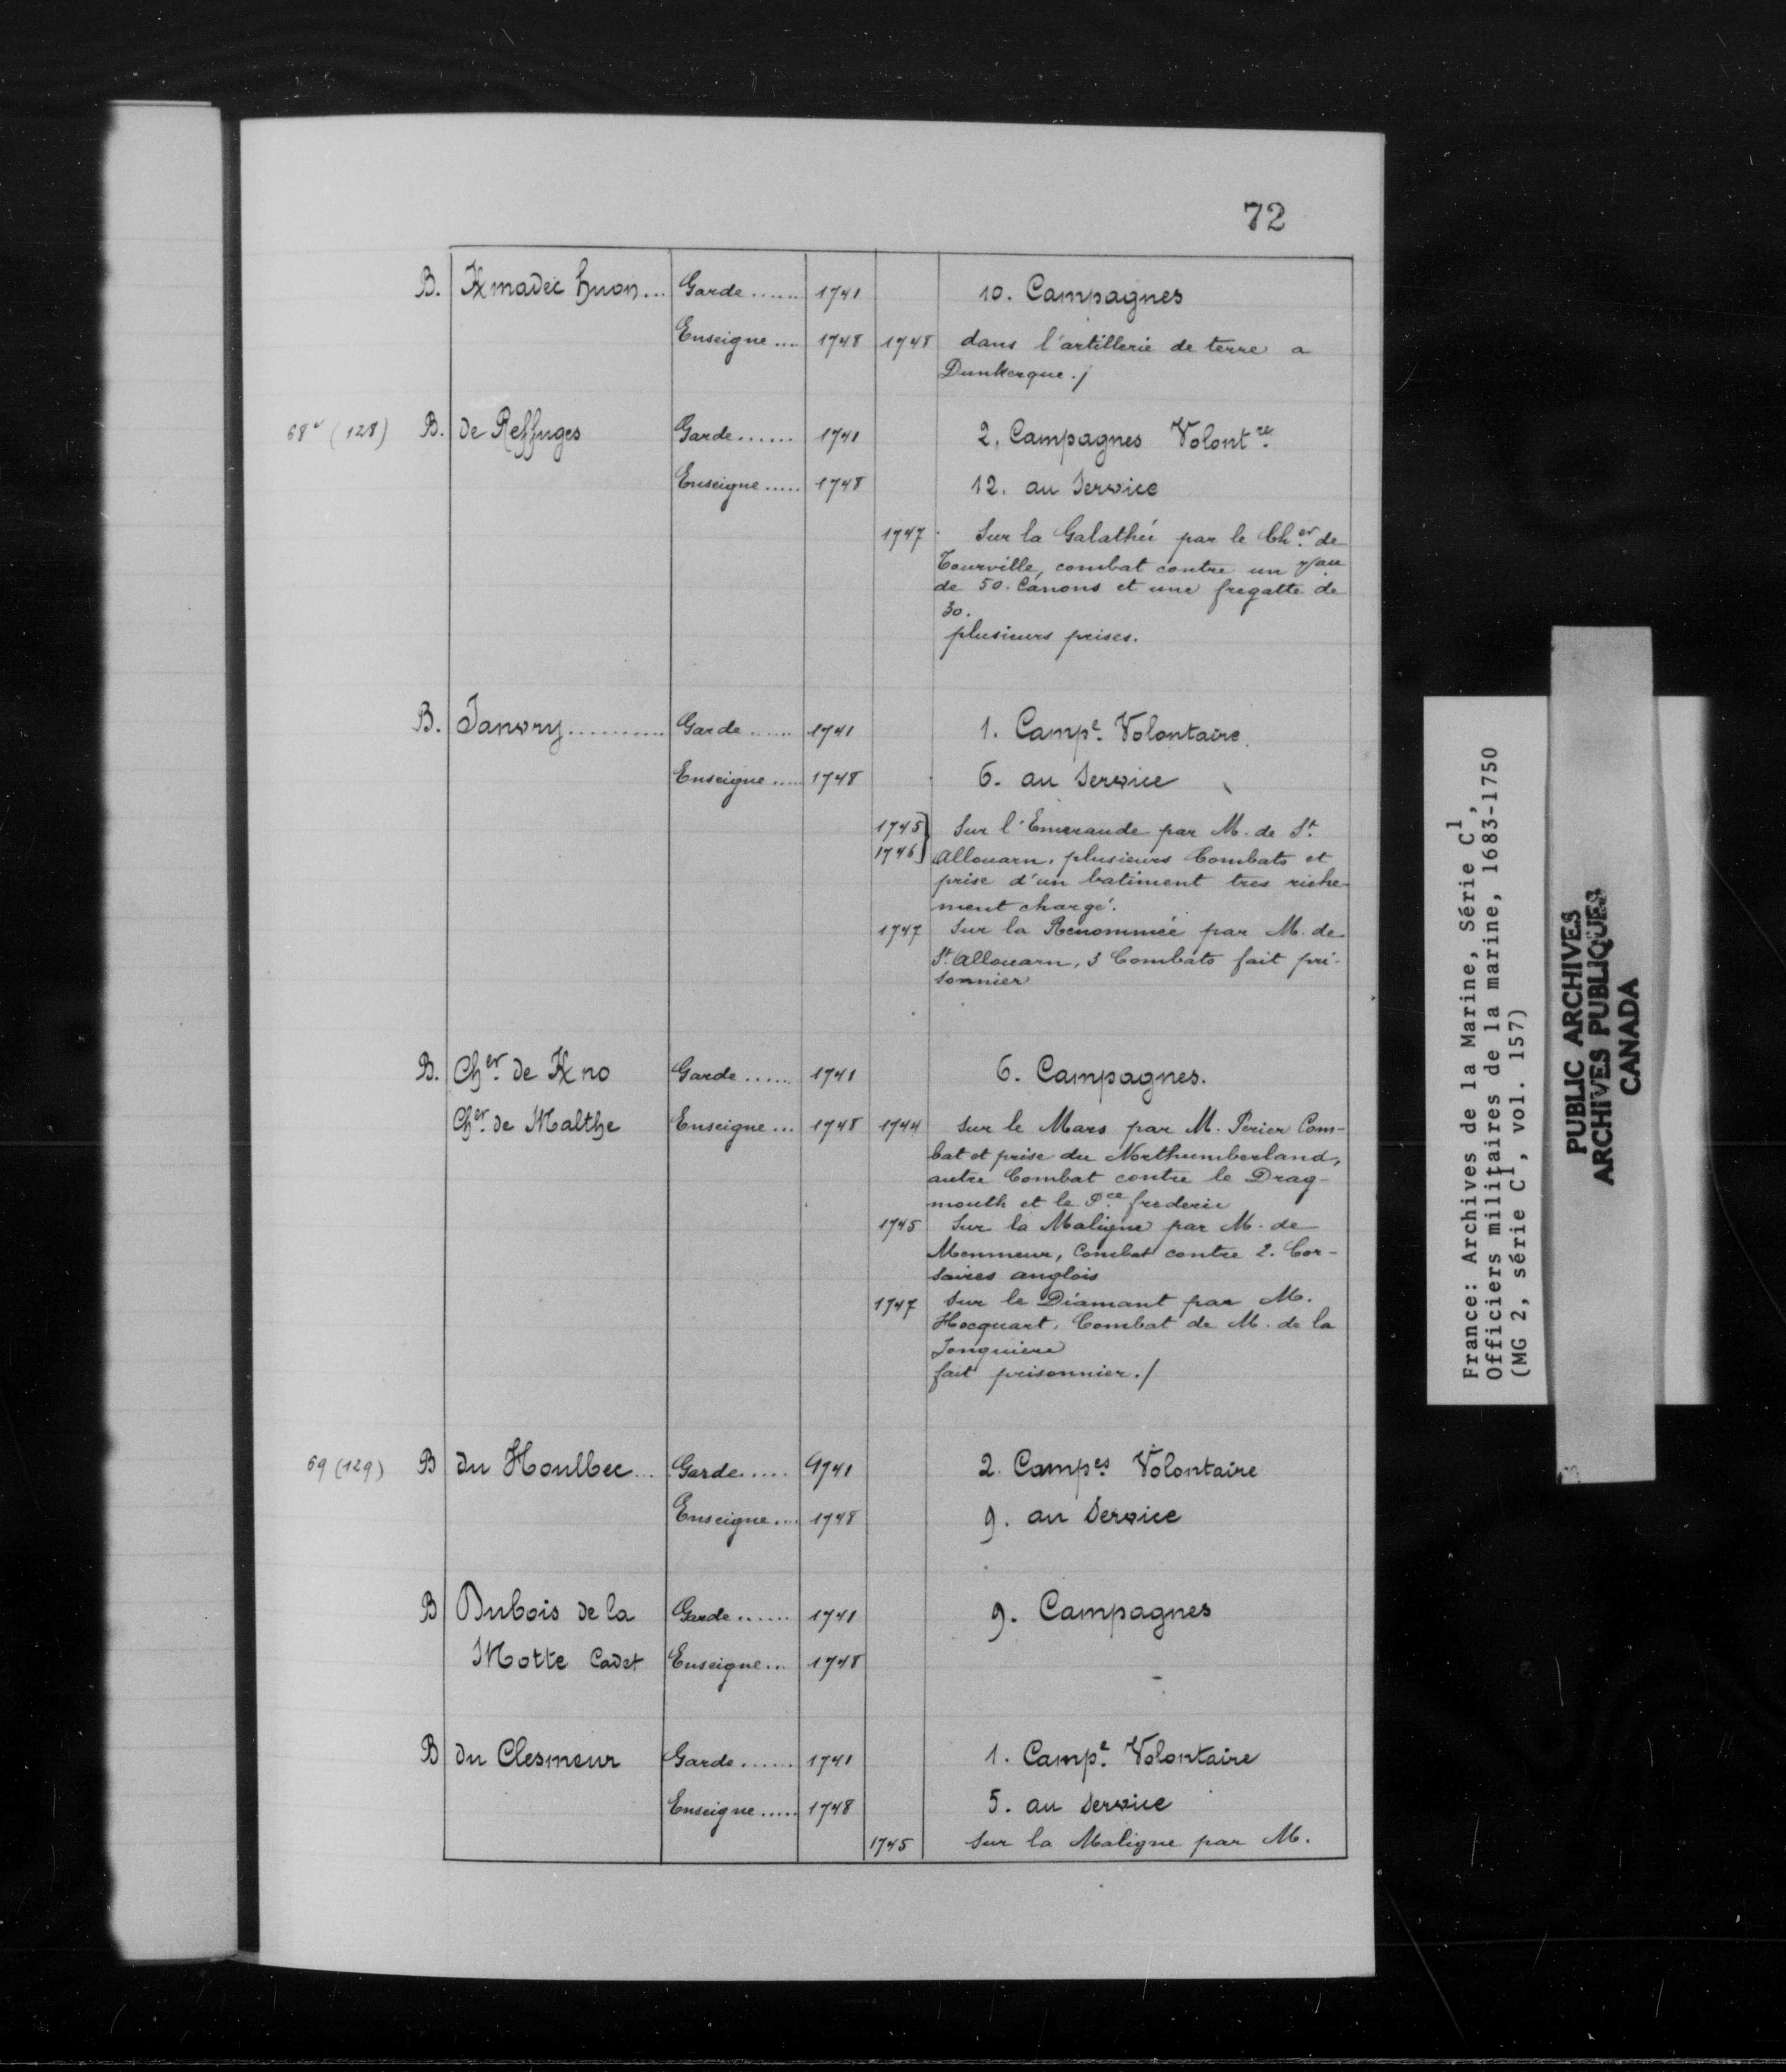 72
B. Kmadec huon... Garde...... 1741 10. Campagnes
Enseigne.... 1748 1748 dans l'artillerie de terre a
Dunkerque./
68v (128) B. de Reffuges Garde...... 1741 2. Campagnes Volontre
Enseigne..... 1748 12. au Service
1747 Sur la Galathée par le Cher de
Tourville, combat contre un Vau
de 50. Canons et une fregatte de
30.
plusieurs prises.
B. Janvry.......... Garde...... 1741 1. Campe Volontaire
Enseigne..... 1748 6. au Service
1745 } Sur l'Emeraude par M. de St.
1746 } Allouarn, plusieurs Combats et
prise d'un batiment tres riche-
ment chargé.
1747 Sur la Renommée par M. de
St. Allouarn, 3 Combats fait pri-
sonnier
B. Cher de Kno Garde...... 1741 6. Campagnes.
Cher de Malthe Enseigne... 1748 1744 Sur le Mars par M. Perier Com-
bat et prise du Northumberland,
autre Combat contre le Drag-
mouth et le Pce frederic
1745 Sur la Maligne par M. de
Monmeur, Combat contre 2. Cor-
saires anglois
1747 Sur le Diamant par M.
Hocquart, Combat de M. de la
Jonquiere
fait prisonnier./
69 (129) B du Houlbec... Garde..... 1741 2. Campes Volontaire
Enseigne... 1748 9. au Service
B Dubois de la Garde...... 1741 9. Campagnes
Motte Cadet Enseigne... 1748
B du Clesmeur Garde...... 1741 1. Campe Volontaire
Enseigne..... 1748 5. au Service
1745 Sur la Maligne par M.
France: Archives de la Marine, Série C1,
Officiers militaires de la marine, 1683-1750
(MG 2, série C1, vol. 157)
PUBLIC ARCHIVES
ARCHIVES PUBLIQUES
CANADA